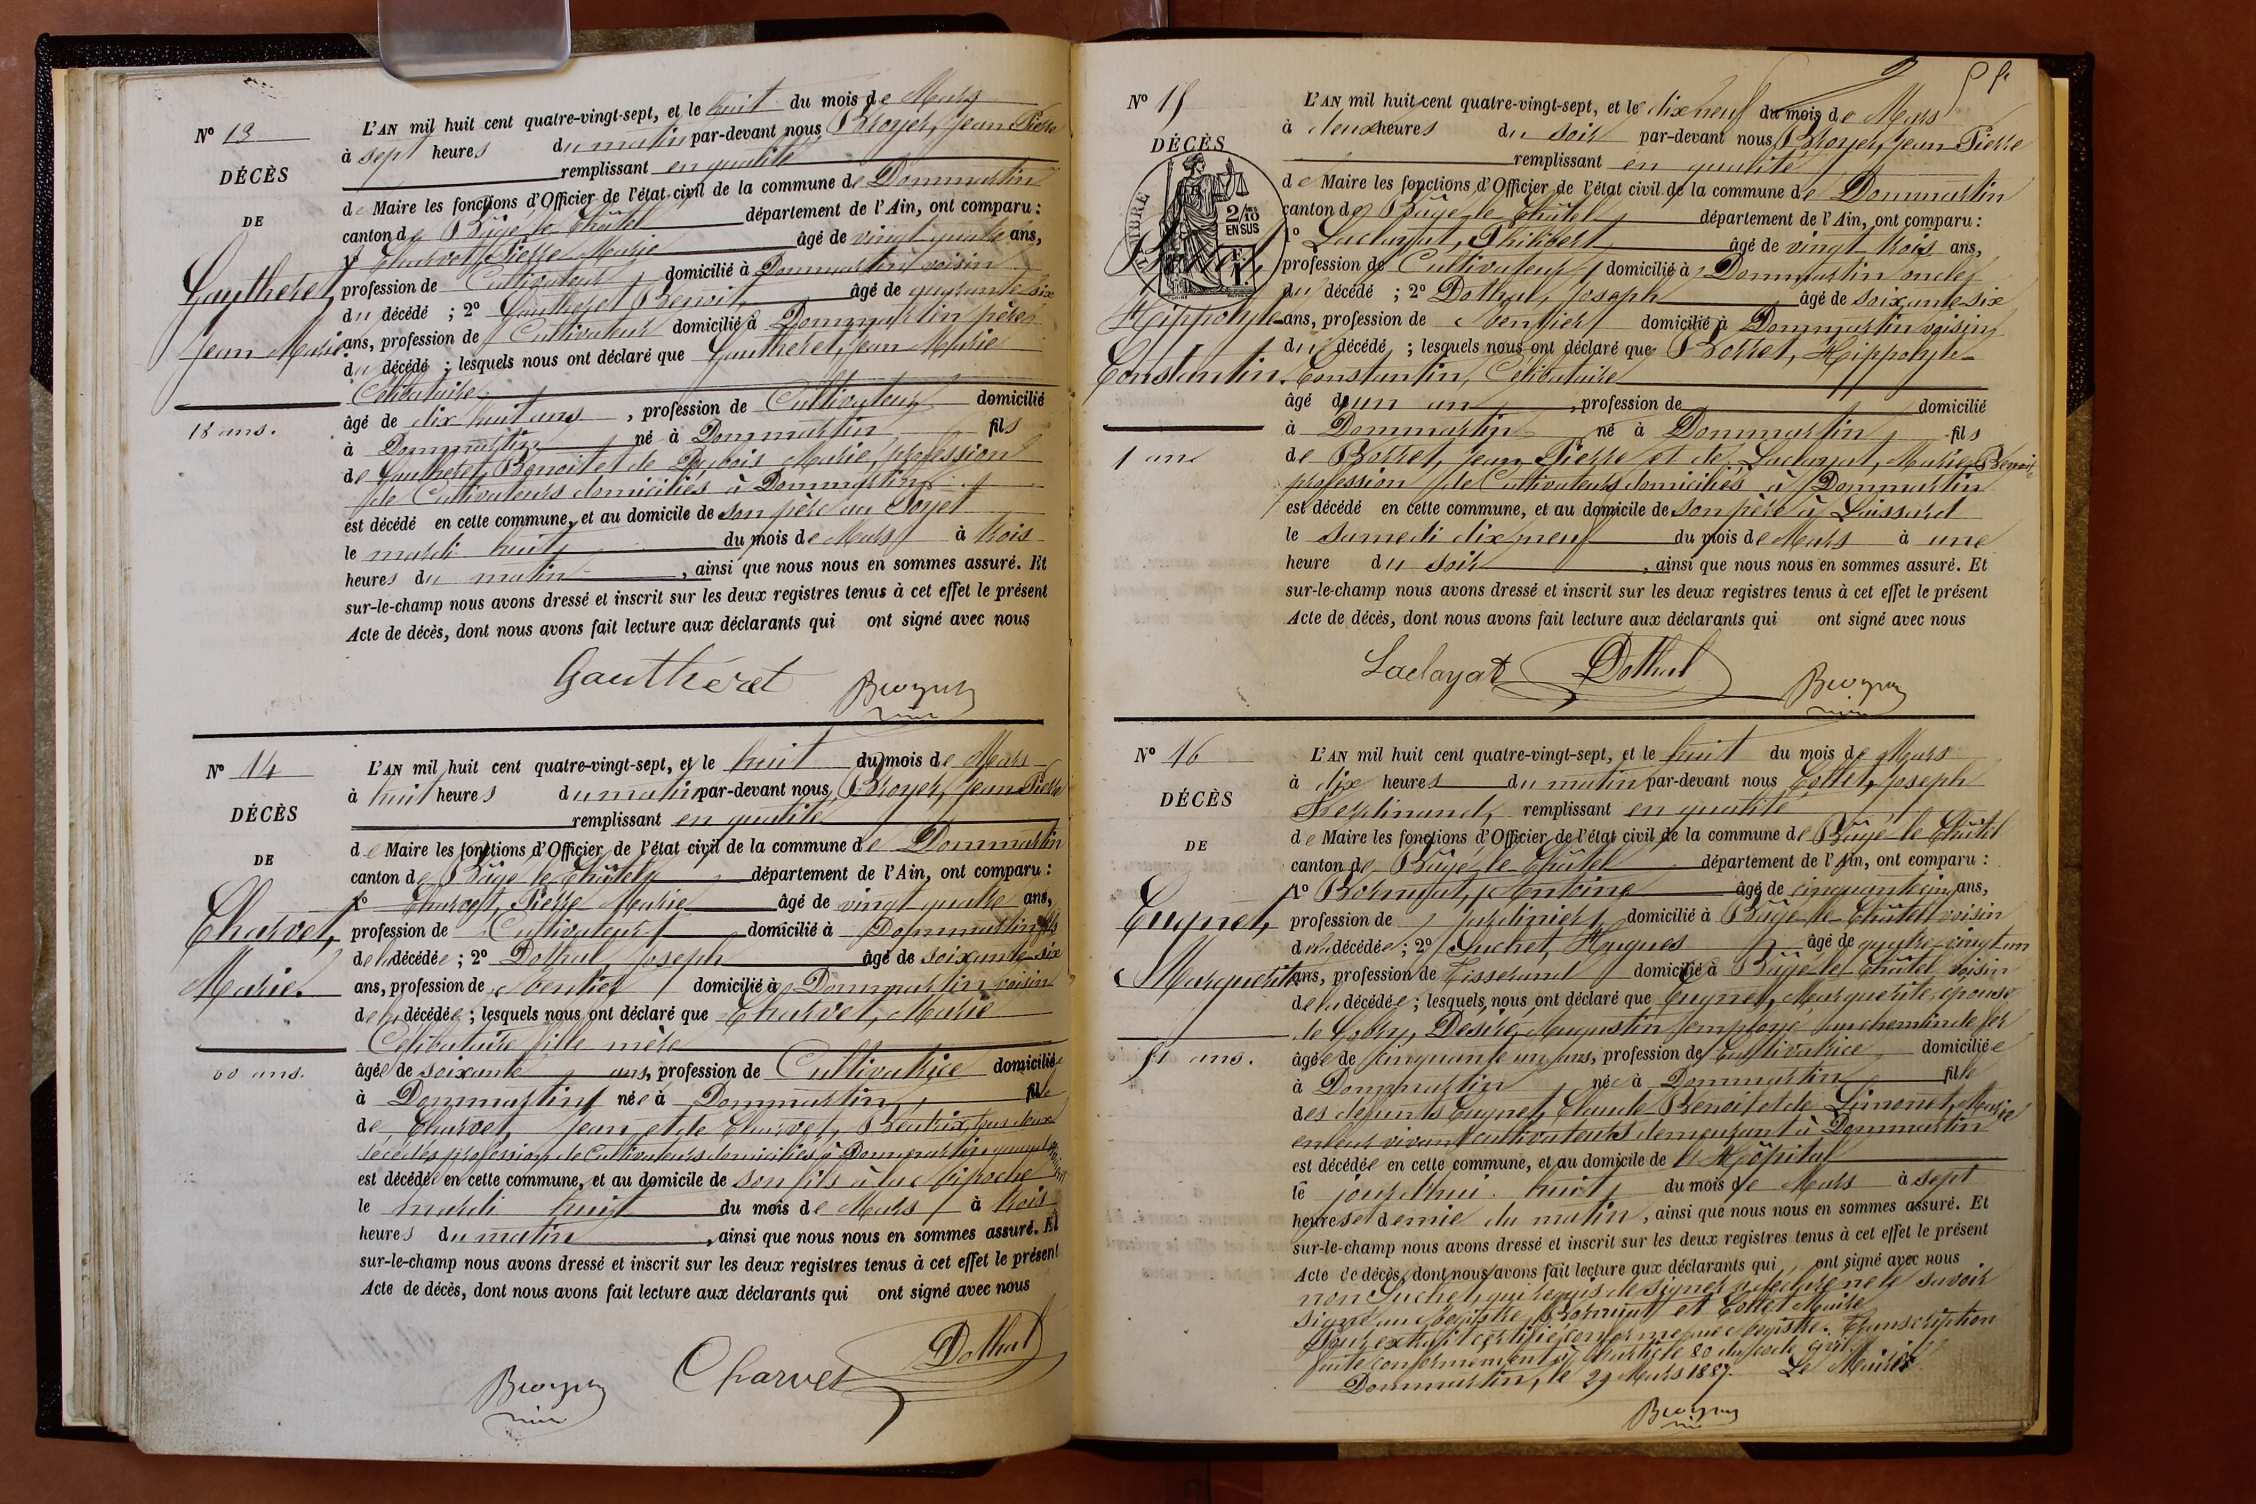 N° 13
DÉCÈS
DE
Gautheret,
Jean Marie
18 ans.
L'AN mil huit cent quatre-vingt-sept, et le huit du mois de Mars
à sept heures du matin par-devant nous Broyer, Jean Pierre
remplissant en qualité
de Maire les fonctions d'Officier de l'état civil de la commune de Dommartin
canton de Bâgé le Châtel département de l'Ain, ont comparu :
1° Charvet, Pierre Marie âgé de vingt quatre ans,
profession de Cultivateur domicilié à Dommartin voisin
du décédé ; 2° Gautheret Benoit, âgé de quarante six
ans, profession de Cultivateur domicilié à Dommartin père
du décédé ; lesquels nous ont déclaré que Gautheret, Jean Marie
Célibataire
âgé de dix huit ans, profession de Cultivateur domicilié
à Dommartin né à Dommartin fils
de Gautheret, Benoit et de Dubois Marie, profession
de Cultivateurs domiciliés à Dommartin
est décédé en cette commune, et au domicile de son père au
le mardi huit du mois de Mars à trois
heures du matin, ainsi que nous nous en sommes assuré. Et
sur-le-champ nous avons dressé et inscrit sur les deux registres tenus à cet effet le présent
Acte de décès, dont nous avons fait lecture aux déclarants qui ont signé avec nous
Gautheret Broyer
N° 14
DÉCÈS
DE
Charvet,
Marie.
60 ans.
L'AN mil huit cent quatre-vingt-sept, et le huit du mois de Mars
à huit heures du matin par-devant nous Broyer, Jean Pierre
remplissant en qualité
de Maire les fonctions d'Officier de l'état civil de la commune de Dommartin
canton de Bâgé le Châtel département de l'Ain, ont comparu :
1° Charvet, Pierre Marie âgé de vingt quatre ans,
profession de Cultivateur domicilié à Dommartin fils
de la décédée ; 2° Dothal Joseph âgé de soixante-six
ans, profession de rentier domicilié à Dommartin voisin
de la décédée ; lesquels nous ont déclaré que Charvet, Marie
Célibataire fille mère
âgée de soixante ans, profession de Cultivatrice domiciliée
à Dommartin née à Dommartin fille
de Charvet, Jean et de Charvet, Béatrix, tous deux
décédés profession de Cultivateurs domiciliés à Dommartin
est décédée en cette commune, et au domicile de son fils à
le mardi huit du mois de Mars à trois
heures du matin, ainsi que nous nous en sommes assuré. Et
sur-le-champ nous avons dressé et inscrit sur les deux registres tenus à cet effet le présent
Acte de décès, dont nous avons fait lecture aux déclarants qui ont signé avec nous
Broyer Charvet Dothal
N° 15
DÉCÈS
TIMBRE
2/10
EN SUS
Borret,
Hippolyte
Constantin.
1 an
L'AN mil huit cent quatre-vingt-sept, et le dix neuf du mois de Mars
à deux heures du soir par-devant nous Broyer, Jean Pierre
remplissant en qualité
de Maire les fonctions d'Officier de l'état civil de la commune de Dommartin
canton de Bâgé le Châtel département de l'Ain, ont comparu :
1° Laclayat, Philibert âgé de vingt trois ans,
profession de Cultivateur domicilié à Dommartin oncle
du décédé ; 2° Dothal, Joseph âgé de soixante six
ans, profession de rentier domicilié à Dommartin voisin
du décédé ; lesquels nous ont déclaré que Borret, Hippolyte
Constantin, Célibataire
âgé d'un an, profession de domicilié
à Dommartin né à Dommartin fils
de Borret, Jean Pierre et de Laclayat, Marie Benoite
profession de Cultivateurs domiciliés à Dommartin
est décédé en cette commune, et au domicile de son père à Loissard
le samedi dix neuf du mois de Mars à une
heure du soir, ainsi que nous nous en sommes assuré. Et
sur-le-champ nous avons dressé et inscrit sur les deux registres tenus à cet effet le présent
Acte de décès, dont nous avons fait lecture aux déclarants qui ont signé avec nous
Laclayat Dothal Broyer
N° 16
DÉCÈS
DE
Cugnet,
Marguerite
51 ans.
L'AN mil huit cent quatre-vingt-sept, et le huit du mois de Mars
à dix heures du matin par-devant nous Collet, Joseph
Ferdinand, remplissant en qualité
de Maire les fonctions d'Officier de l'état civil de la commune de Bâgé le Châtel
canton de Bâgé le Châtel département de l'Ain, ont comparu :
1° Bornuat, Antoine âgé de cinquante cinq ans,
profession de Jardinier, domicilié à Bâgé le Châtel voisin
de la décédée ; 2° Suchet, Hugues âgé de quatre-vingt un
ans, profession de Tisserand domicilié à Bâgé le Châtel voisin
de la décédée ; lesquels nous ont déclaré que Cugnet, Marguerite, épouse
de Désiré Augustin, employé au chemin de fer
âgée de cinquante un ans, profession de Cultivatrice domiciliée
à Dommartin née à Dommartin fille
des défunts Cugnet, Claude Benoit et de Limonet, Marie
en leur vivant cultivateurs demeurant à Dommartin
est décédée en cette commune, et au domicile de l'Hôpital
le jourd'hui huit du mois de Mars à sept
heures et demie du matin, ainsi que nous nous en sommes assuré. Et
sur-le-champ nous avons dressé et inscrit sur les deux registres tenus à cet effet le présent
Acte de décès, dont nous avons fait lecture aux déclarants qui ont signé avec nous
non Suchet, qui requis de signer a déclaré ne le savoir
signé au registre Bornuat et Collet Maire
Pour extrait certifié conforme au registre. Transcription
faite conformément à l'article 80 du code civil.
Dommartin, le 29 Mars 1887. Le Maire
Broyer